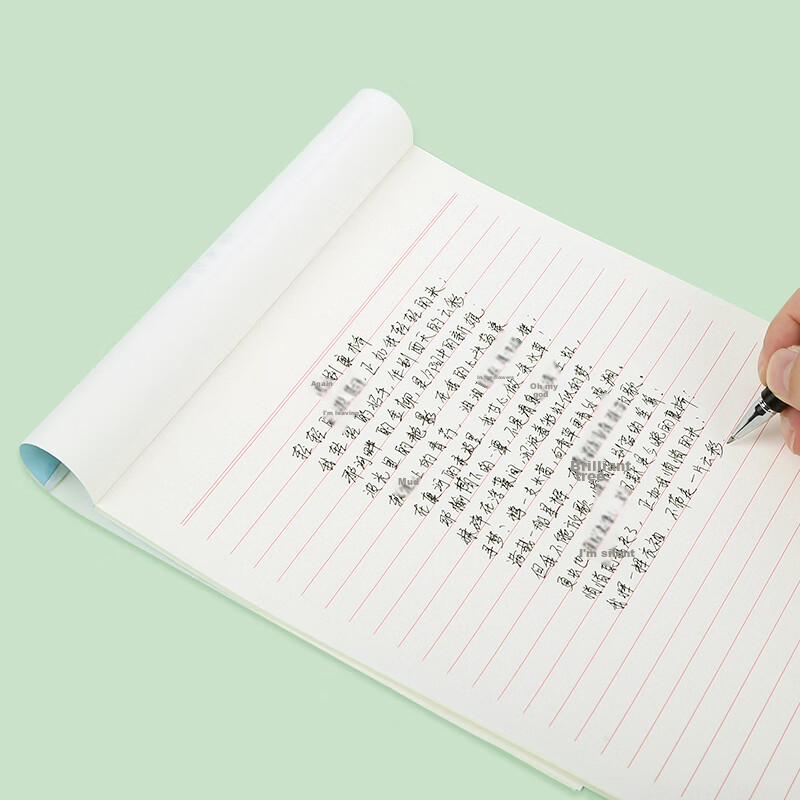 Again
别康桥
轻轻
I'm leaving
正如我轻轻的来；
我轻轻的招手，作别西天的云彩。
那河畔的金柳，是夕阳中的新娘
波光里的艳影，在我的心头荡漾
Mud
上的青荇，油油 摇；
在康河的柔波里，我甘心做一条水草
Oh my
god
那榆荫下的一潭，不是清泉 虹
揉碎在浮藻间，沉淀着彩虹似的梦
寻梦？撑一支长篙，向青草更青处漫溯
Brilliant
tree
满载一船星辉 歌。
但我不能放歌， 别离的笙箫；
I'm silent
夏虫也 是今晚的康桥
悄悄 走了，正如我悄悄的来
我挥一挥衣袖，不带走一片云彩